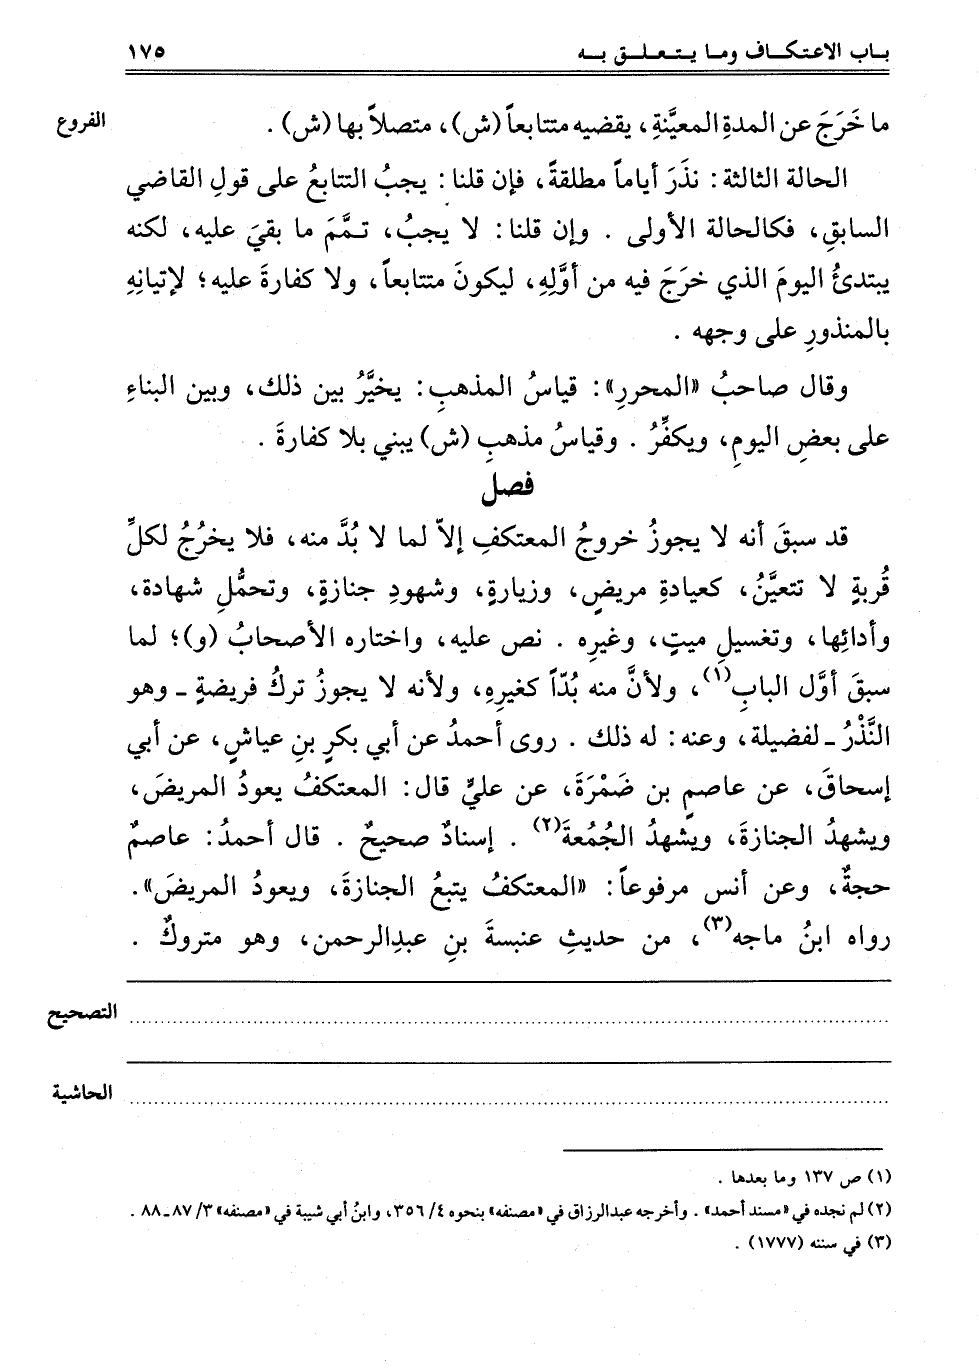 باب الاعتكاف وما يتعلق به ١٧٥
الفروع
ما خَرَجَ عن المدةِ المعيَّنةِ، يقضيه متتابعاً (ش)، متصلاً بها (ش) .
الحالة الثالثة: نذَرَ أياماً مطلقةً، فإن قلنا: يجبُ التتابعُ على قولِ القاضي
السابقِ، فكالحالة الأولى . وإن قلنا: لا يجبُ، تمَّمَ ما بقيَ عليه، لكنه
يبتدئُ اليومَ الذي خرَجَ فيه من أوَّلِهِ، ليكونَ متتابعاً، ولا كفارةَ عليه؛ لإتيانِهِ
بالمنذورِ على وجهه .
وقال صاحبُ «المحررِ»: قياسُ المذهبِ: يخيَّرُ بين ذلك، وبين البناءِ
على بعضِ اليومِ، ويكفِّرُ . وقياسُ مذهبِ (ش) يبني بلا كفارةَ .
فصل
قد سبقَ أنه لا يجوزُ خروجُ المعتكفِ إلاّ لما لا بُدَّ منه، فلا يخرُجُ لكلِّ
قُربةٍ لا تتعيَّنُ، كعيادةِ مريضٍ، وزيارةٍ، وشهودِ جنازةٍ، وتحمُّلِ شهادة،
وأدائِها، وتغسيلِ ميتٍ، وغيرِه . نص عليه، واختاره الأصحابُ (و)؛ لما
سبقَ أوَّل البابِ(١)، ولأنَّ منه بُدّاً كغيرِهِ، ولأنه لا يجوزُ تركُ فريضةٍ ـ وهو
النَّذْرُ ـ لفضيلة، وعنه: له ذلك . روى أحمدُ عن أبي بكرٍ بنِ عياشٍ، عن أبي
إسحاقَ، عن عاصمٍ بن ضَمْرَةَ، عن عليٍّ قال: المعتكفُ يعودُ المريضَ،
ويشهدُ الجنازةَ، ويشهدُ الجُمُعةَ(٢) . إسنادٌ صحيحٌ . قال أحمدُ: عاصمٌ
حجةٌ، وعن أنس مرفوعاً: «المعتكفُ يتبعُ الجنازةَ، ويعودُ المريضَ».
رواه ابنُ ماجه(٣)، من حديثِ عنبسةَ بنِ عبدِالرحمن، وهو متروكٌ .
التصحيح
الحاشية
(١) ص ١٣٧ وما بعدها .
(٢) لم نجده في «مسند أحمد» . وأخرجه عبدالرزاق في «مصنفه» بنحوه ٤/ ٣٥٦، وابنُ أبي شيبة في «مصنفه» ٣/ ٨٧ـ٨٨ .
(٣) في سننه (١٧٧٧) .